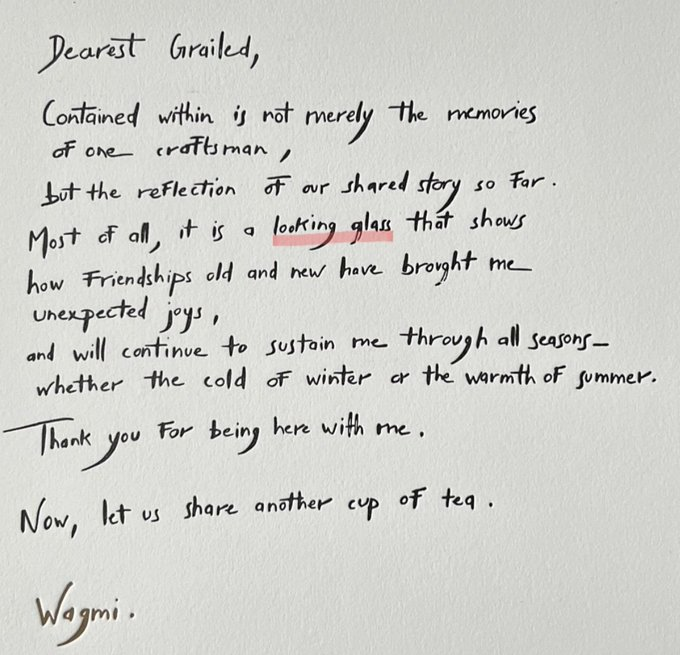 Dearest Grailed,
Contained within is not merely the memories
of one craftsman,
but the reflection of our shared story so far.
Most of all, it is a looking glass that shows
how friendships old and new have brought me
unexpected joys,
and will continue to sustain me through all seasons—
whether the cold of winter or the warmth of summer.
Thank you for being here with me.
Now, let us share another cup of tea.
Wagmi.